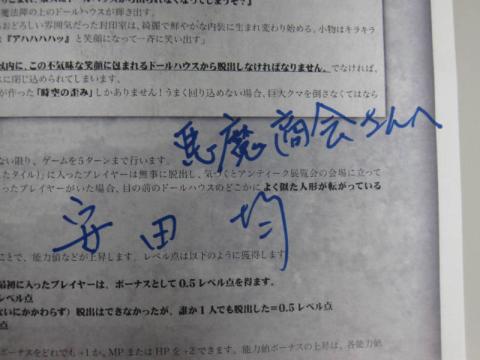 魔法陣の上のドールハウスが輝き出す。
おどろしい雰囲気だった封印室は、綺麗で鮮やかな内装に生まれ変わり始める。小物はキラキラ
『アハハハハッ』と笑顔になって一斉に笑い出す」
以内に、この不気味な笑顔に包まれるドールハウスから脱出しなければなりません。でなければ、
スに閉じ込められてしまいます。
が作った「時空の歪み」しかありません!うまく回り込めない場合、巨大クマを倒さなくてはなら
悪魔商会さんへ
ない限り、ゲームを5ターンまで行います。
ったタイル」に入ったプレイヤーは無事に脱出し、気づくとアンティーク展覧会の会場に立って
ったプレイヤーがいた場合、目の前のドールハウスのどこかによく似た人形が転がっている
安田 均
ことで、能力値などが上昇します。レベル点は以下のように獲得します
最初に入ったプレイヤーは、ボーナスとして0.5レベル点を得ます。
レベル点
ないにかかわらず)脱出はできなかったが、誰か1人でも脱出した=0.5レベル点
点
ボーナスをどれでも+1か、MPまたはHPを+2できます。能力値ボーナスの上昇は、各能力値